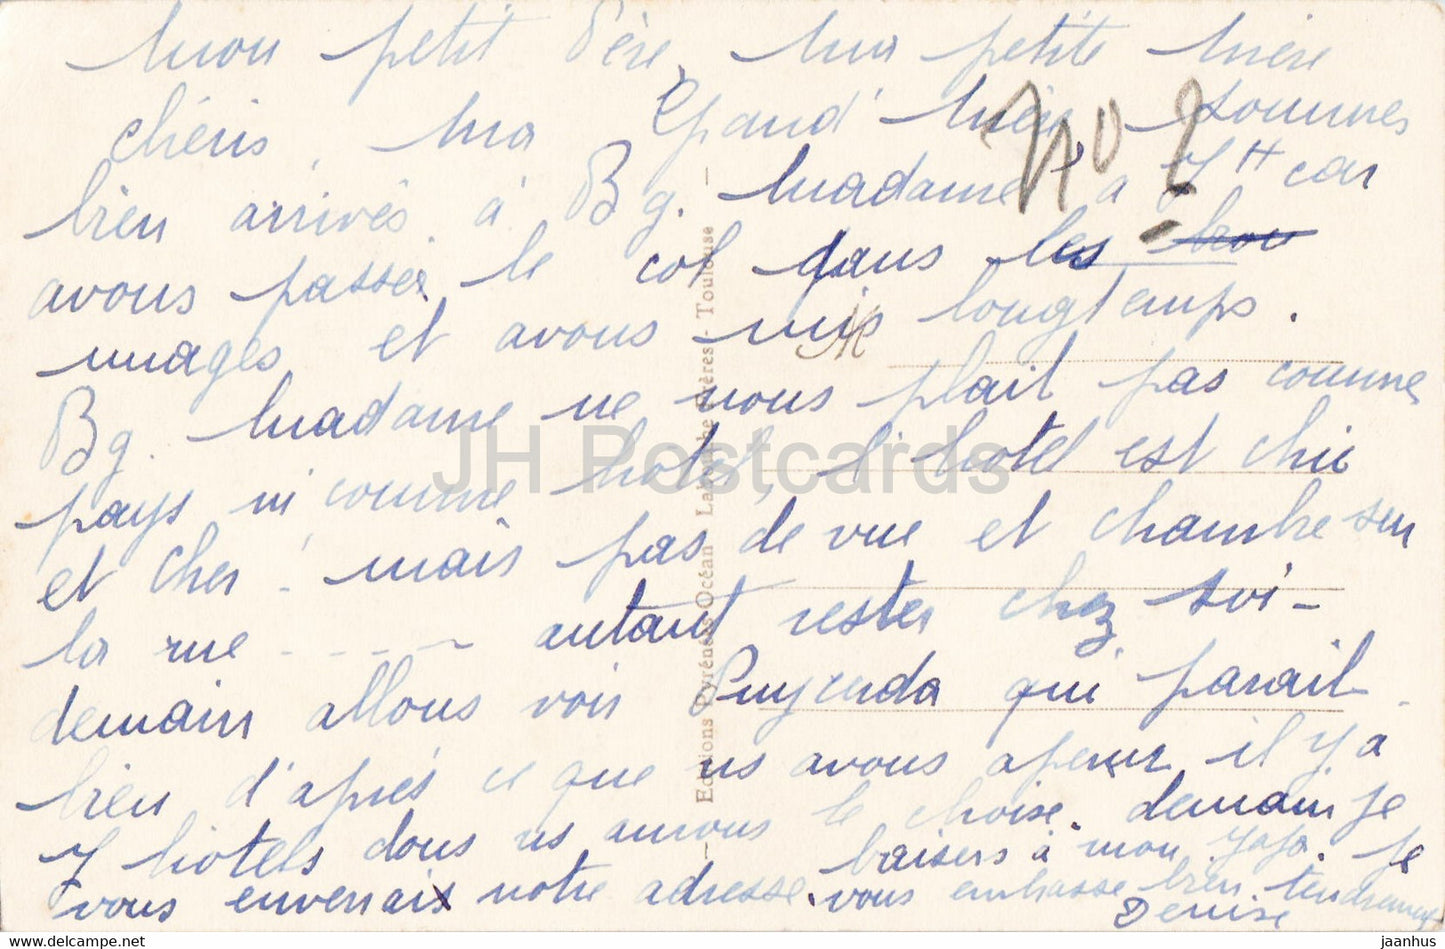 mon petit Père, ma petite mère
chéris, ma Grand' mère sommes
bien arrivés à Bg. madame a 7H car
avons passé le col dans les
nuages et avons mis longtemps.
Bg. madame ne nous plait pas comme
pays ni comme hotel, l'hotel est chic
et cher - mais pas de vue et chambre sur
la rue ----- autant rester chez soi -
demain allons voir Puycerda qui parait
bien d'après ce que ns avons aperçu il y a
7 hotels donc ns aurons le choix. demain je
vous enverrais notre adresse. baisers à mon Yaya. je
vous embrasse bien tendrement
Denise
No 2
Editions Pyrénées-Océan - Labouche Frères - Toulouse
JH Postcards
jaanhus © www.delcampe.net